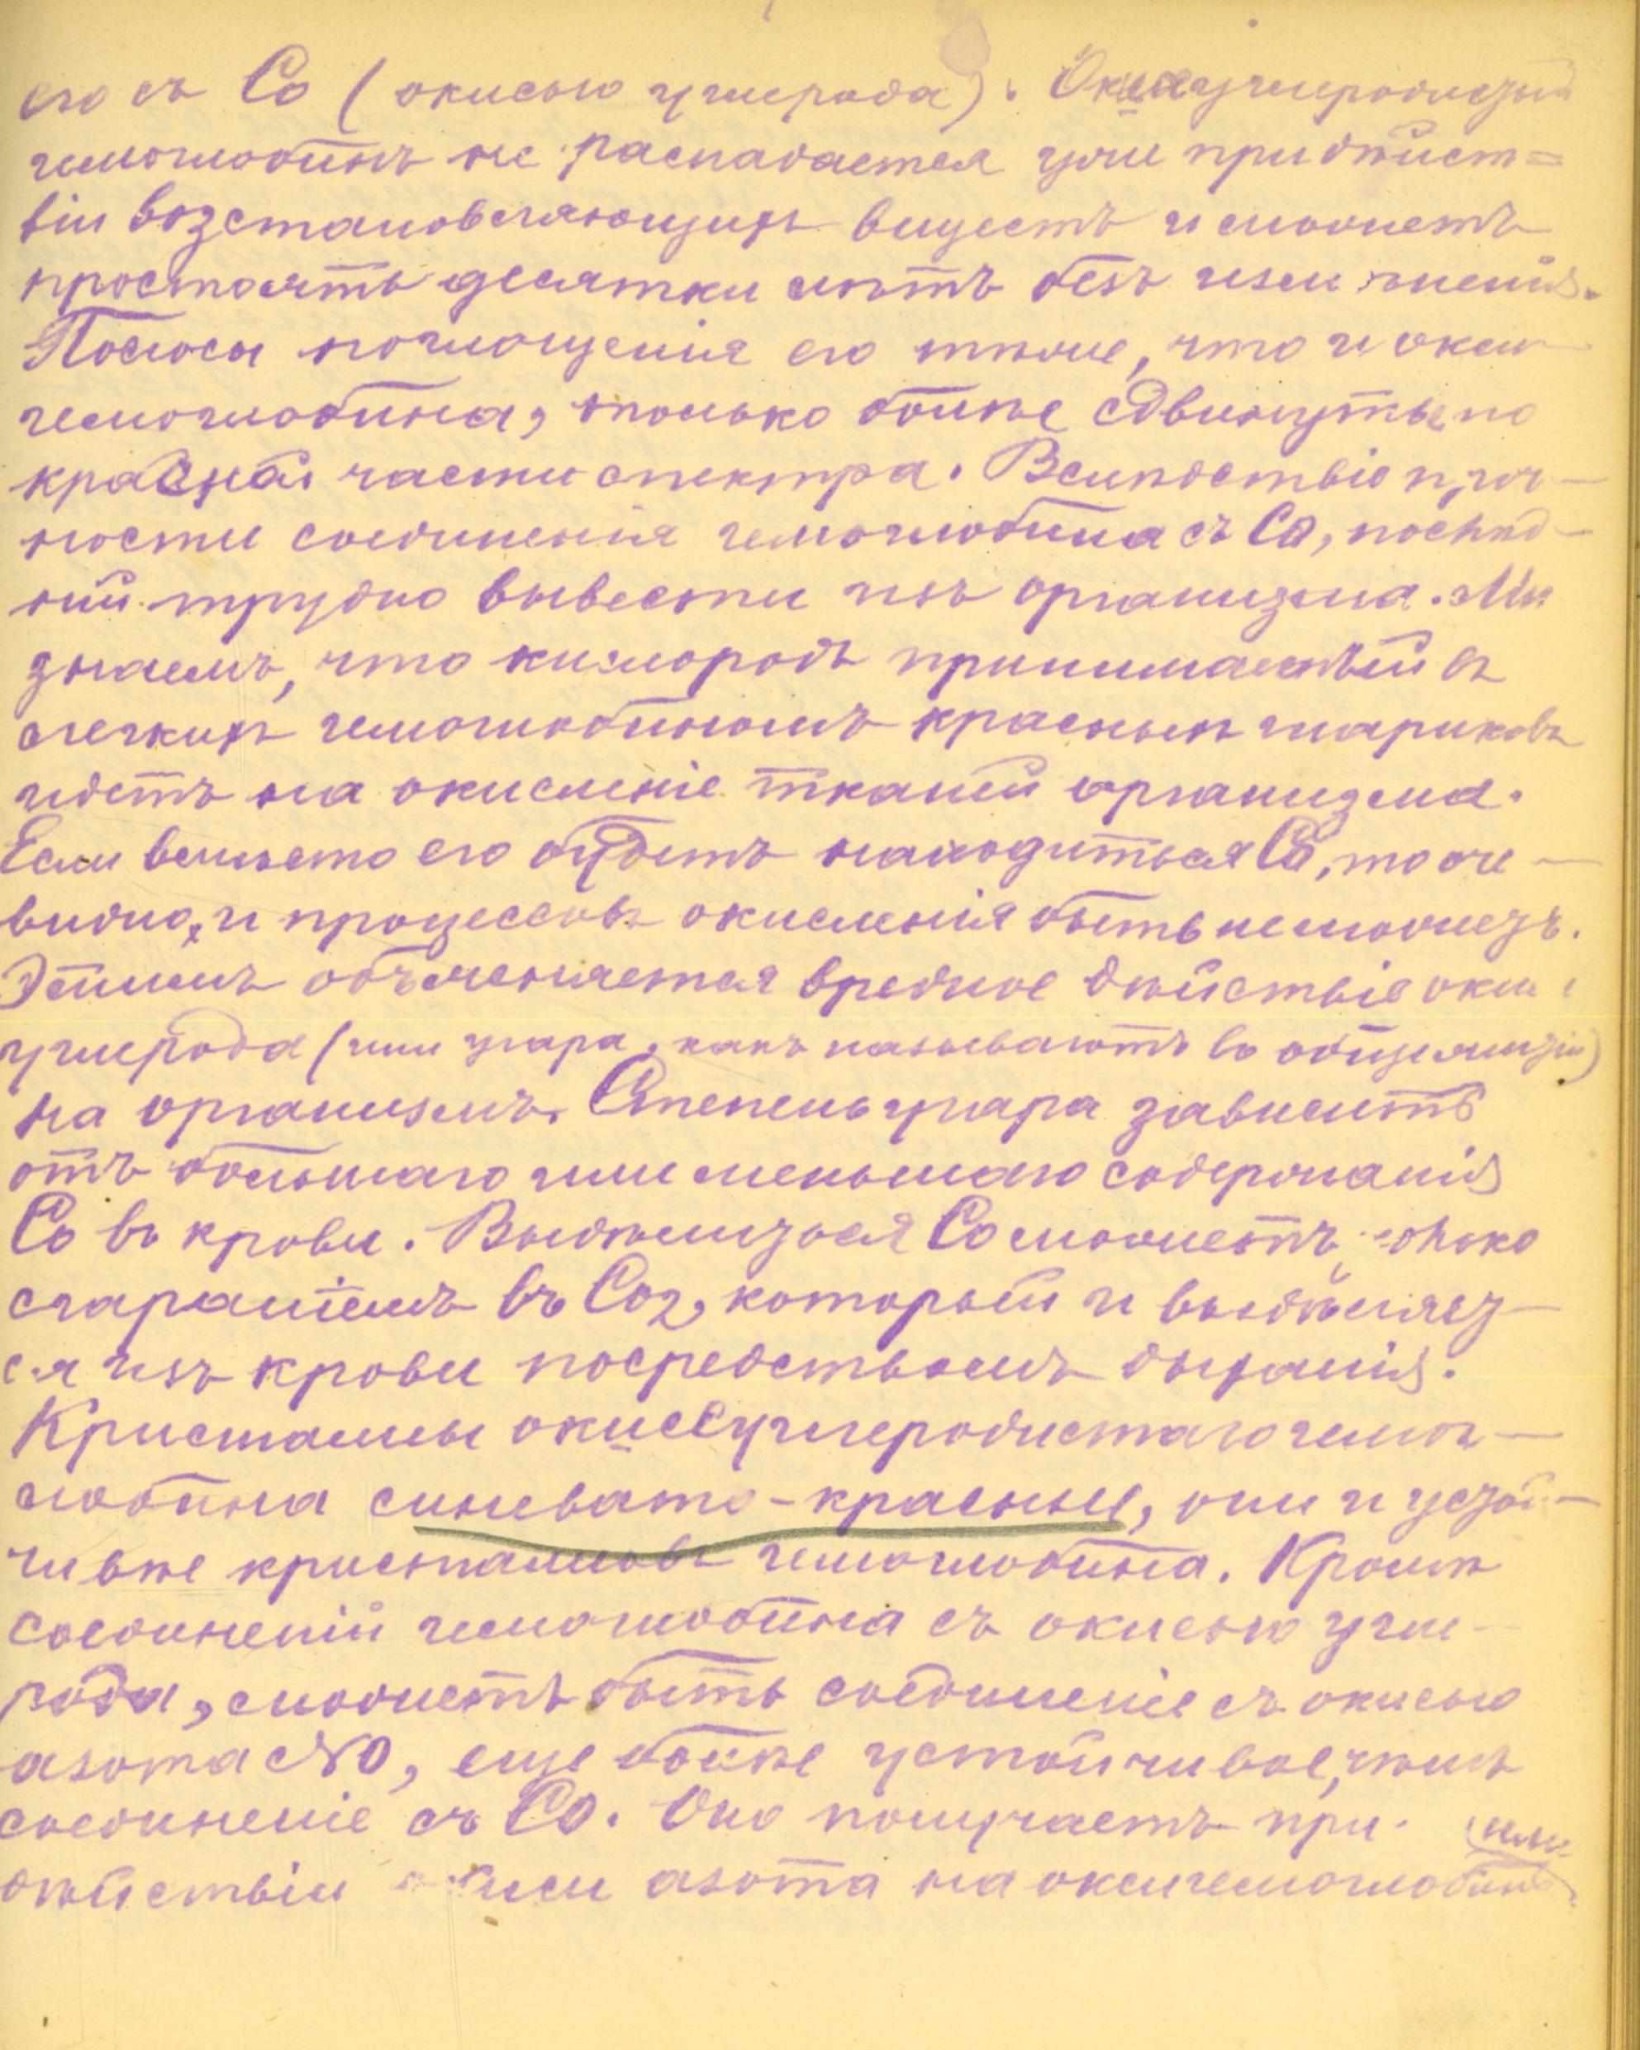 его съ Со (окисью углерода). Окисеуглеродистый
гемоглобинъ не распадается уже при дѣйст=
віи возстановляющихъ веществъ и можетъ
простоять десятки лѣтъ безъ измѣненія.
Полосы поглощенія его тѣже, что и окси
гемоглобина, только болѣе сдвинуты по
красной части спектра. Вслѣдствіе проч-
ности соединенія гемоглобина съ СО, послѣд-
ній трудно вывести изъ организма. Мы
знаемъ, что кислородъ принимаемый въ
легкихъ гемоглобиномъ красныхъ шариковъ
идетъ на окисленіе тканей организма.
Если вмѣсто его будетъ находиться СО, то оче-
видно, и процессовъ окисленія быть не можетъ.
Этимъ объясняется вредное дѣйствіе окиси
углерода (или угара, какъ называютъ въ общежитіи)
на организмъ. Степень угара зависитъ
отъ большаго или меньшаго содержанія
Со въ крови. Выдѣлиться Со можетъ только
сгараніемъ въ Со2, который и выдѣляет-
ся изъ крови посредствомъ дыханія.
Кристаллы окисеуглеродистаго гемог-
лобина синевато-красные, они и устой-
чивѣе кристалловъ гемоглобина. Кромѣ
соединеній гемоглобина съ окисью угле-
рода, можетъ быть соединеніе съ окисью
азота NO, еще болѣе устойчивое, чѣмъ
соединеніе съ СО. Оно получаетъ при
дѣйствіи окиси азота на оксигемоглобинъ